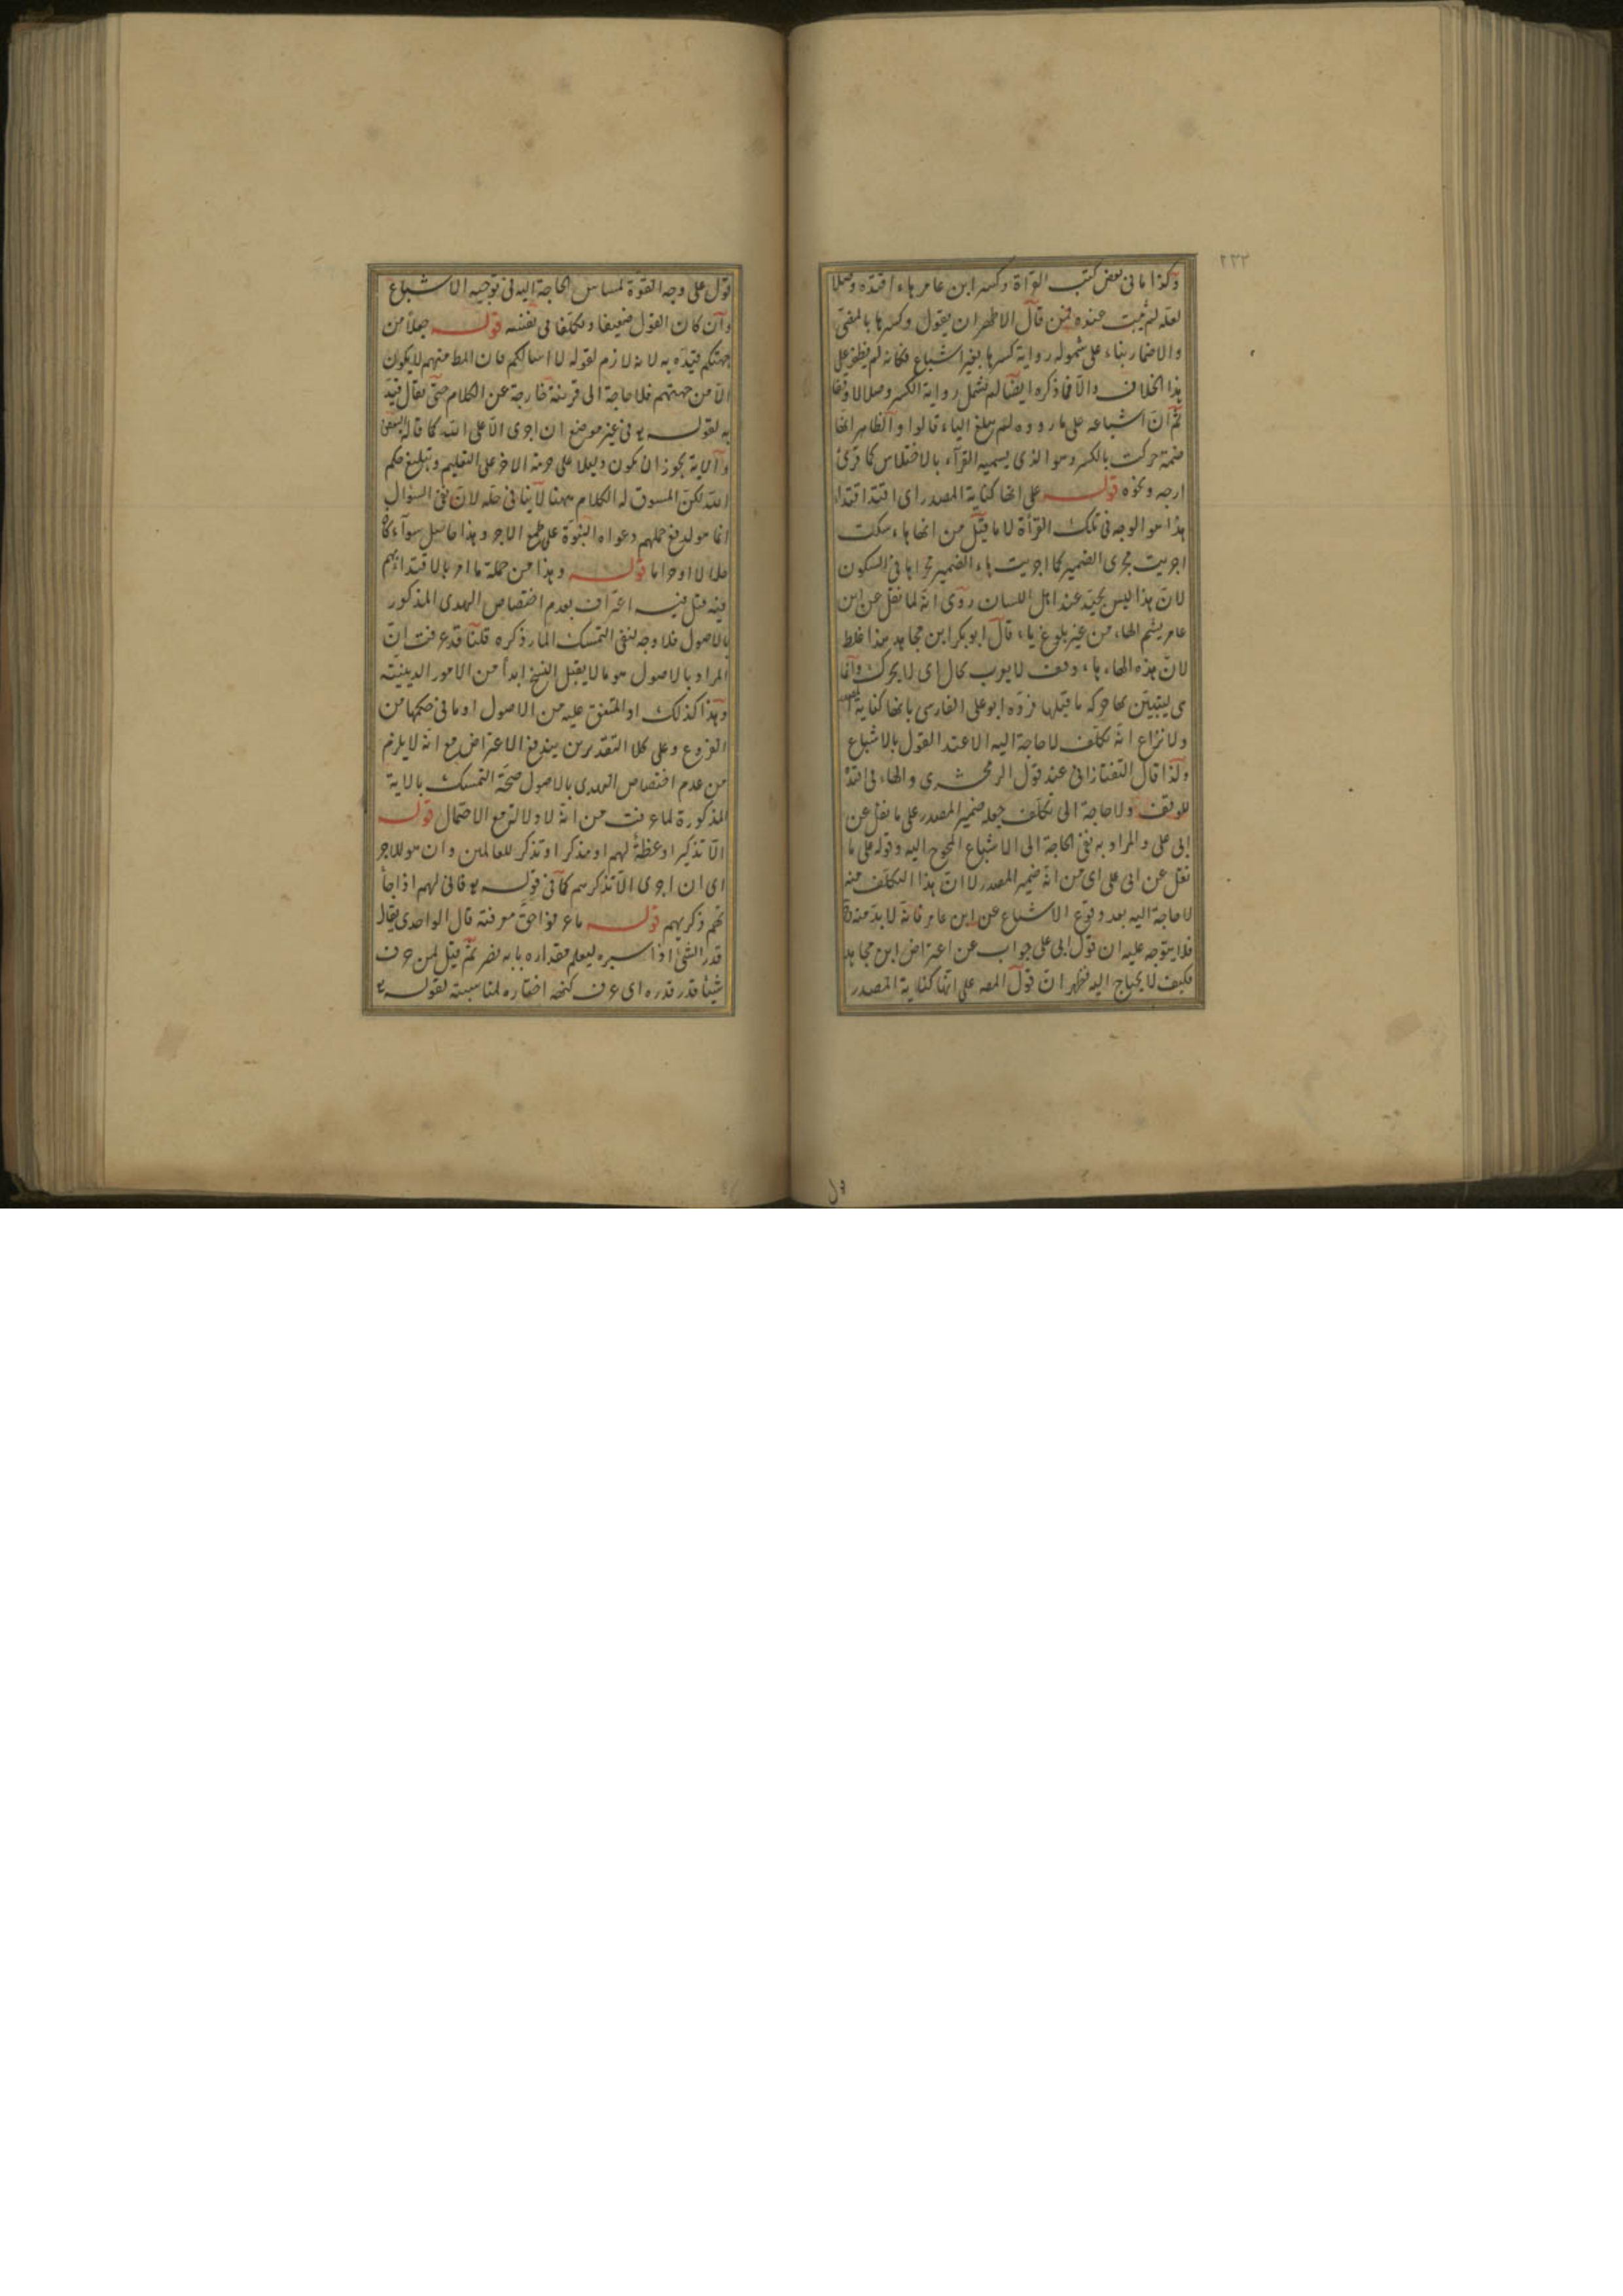 ٢٢٢
وكذا ما فى بعض كتب القرأة وكسر ابن عامر هاء اقتده وصلا
لعله لم يثبت عنده فمن قال الاظهر ان يقول وكسرها بالمفتى
والاضمار بناء على شموله رواية كسرها بغير اشباع فكانه لم يطلع على
هذا الخلاف والّا فما ذكره ايضا لم يشمل رواية الكسر وصلا لا وقفا
ثمّ انّ اشباعه على ما رووه لم يبلغ الياء قالوا والظاهر انها
ضمة حركت بالكسر وهو الذى يسميه القرّاء بالاختلاس كما قرئ
ارجه ونحوه قوله على انها كناية المصدر اى اقتد اقتداء
هذا هو الوجه فى تلك القرأة لا ما قيل من انها هاء سكت
اجريت مجرى الضمير كما اجريت هاء الضمير مجراها فى السكون
لانّ هذا ليس بجيّد عند اهل اللسان روى انه لما نقل عن ابن
عامر يشم الهاء من غير بلوغ ياء قال ابو بكر ابن مجاهد هذا غلط
لانّ هذه الهاء هاء وقف لا يعرب بحال اى لا يحرك وانما
هى ليتبيّن بها حركة ما قبلها فردّه ابو على الفارسى بانها كناية المصدر
ولا نزاع انه تكلّف لا حاجة اليه الا عند القول بالاشباع
ولذا قال التفتازانى عند قول الزمخشرى والهاء فى اقتده
للوقف ولا حاجة الى تكلّف جعله ضمير المصدر على ما نقل عن
ابى على والمراد به نفى الحاجة الى الاشباع المحوج اليه وقوله على ما
نقل عن ابى على اى من انه ضمير المصدر لا انّ هذا التكلّف منه
لا حاجة اليه بعد وقوع الاشباع عن ابن عامر فانه لا بدّ منه
فلا يتوجه عليه ان قول ابى على جواب عن اعتراض ابن مجاهد
فكيف لا يحتاج اليه فظهر انّ قول المصـ على انها كناية المصدر
قول على وجه القوّة لمساس الحاجة اليه فى توجيه الاشباع
وان كان القول ضعيفا وتكلّفا فى نفسه قوله جعلا من
جهتكم قيّده به لانه لازم لقوله لا اسالكم فان المط منهم لا يكون
الّا من جهتهم فلا حاجة الى قرينة خارجة عن الكلام حتّى يقال قيّد
به لقوله تع فى غير موضع ان اجرى الّا على الله كما قاله البعض
والاية يجوز ان يكون دليلا على حرمة الاجر على التعليم وتبليغ حكم
الله لكن المسوق له الكلام ههنا لا ينافى حله لانّ نفى السؤال
انما هو لدفع حملهم دعواه النبوّة على طمع الاجر وهذا حاصل سوآء كان
حلالا او حراما قوله وهذا من جملة ما امر بالاقتداء بهم
فيه قيل فيه اعتراف بعدم اختصاص الهدى المذكور
بالاصول فلا وجه لنفى التمسك المار ذكره قلنا قد عرفت انّ
المراد بالاصول هو ما لا يقبل النسخ ابدا من الامور الدينيّة
وهذا كذلك او المتفق عليه من الاصول او ما فى حكمها من
الفروع وعلى كلا التقديرين يندفع الاعتراض مع انّه لا يلزم
من عدم اختصاص الهدى بالاصول صحّة التمسك بالاية
المذكورة لما عرفت من انّه لا دلالة مع الاحتمال قوله
الّا تذكيرا وعظة لهم او مذكر او تذكر للعالمين وان هو للاجر
اى ان اجرى الّا تذكرهم كما فى قوله تع فانى لهم اذا جا
ئتهم ذكريهم قوله ما عرفوا حقّ معرفته قال الواحدى يقال
قدر الشئ اذا سبره ليعلم مقداره بابه نصر ثمّ قيل لمن عرف
شيئا قدر قدره اى عرف كنهه اختاره لمناسبته لقوله تع